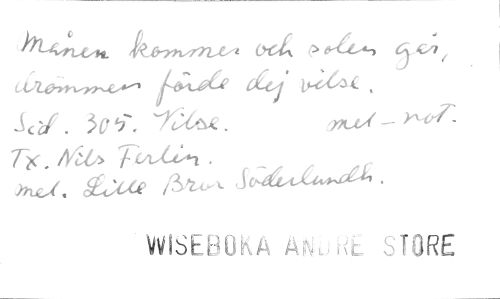 Månen kommer och solen går,
drömmen förde dej vilse.
Sid. 305. Vilse. mel-not.
Tx. Nils Ferlin.
mel. Lille Bror Söderlundh.
WISEBOKA ANDRE STORE